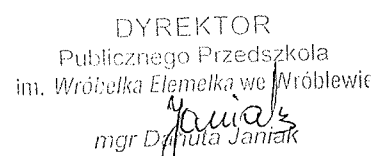 DYREKTOR
Publicznego Przedszkola
im. Wróbelka Elemelka we Wróblewie
Janiak
mgr Danuta Janiak